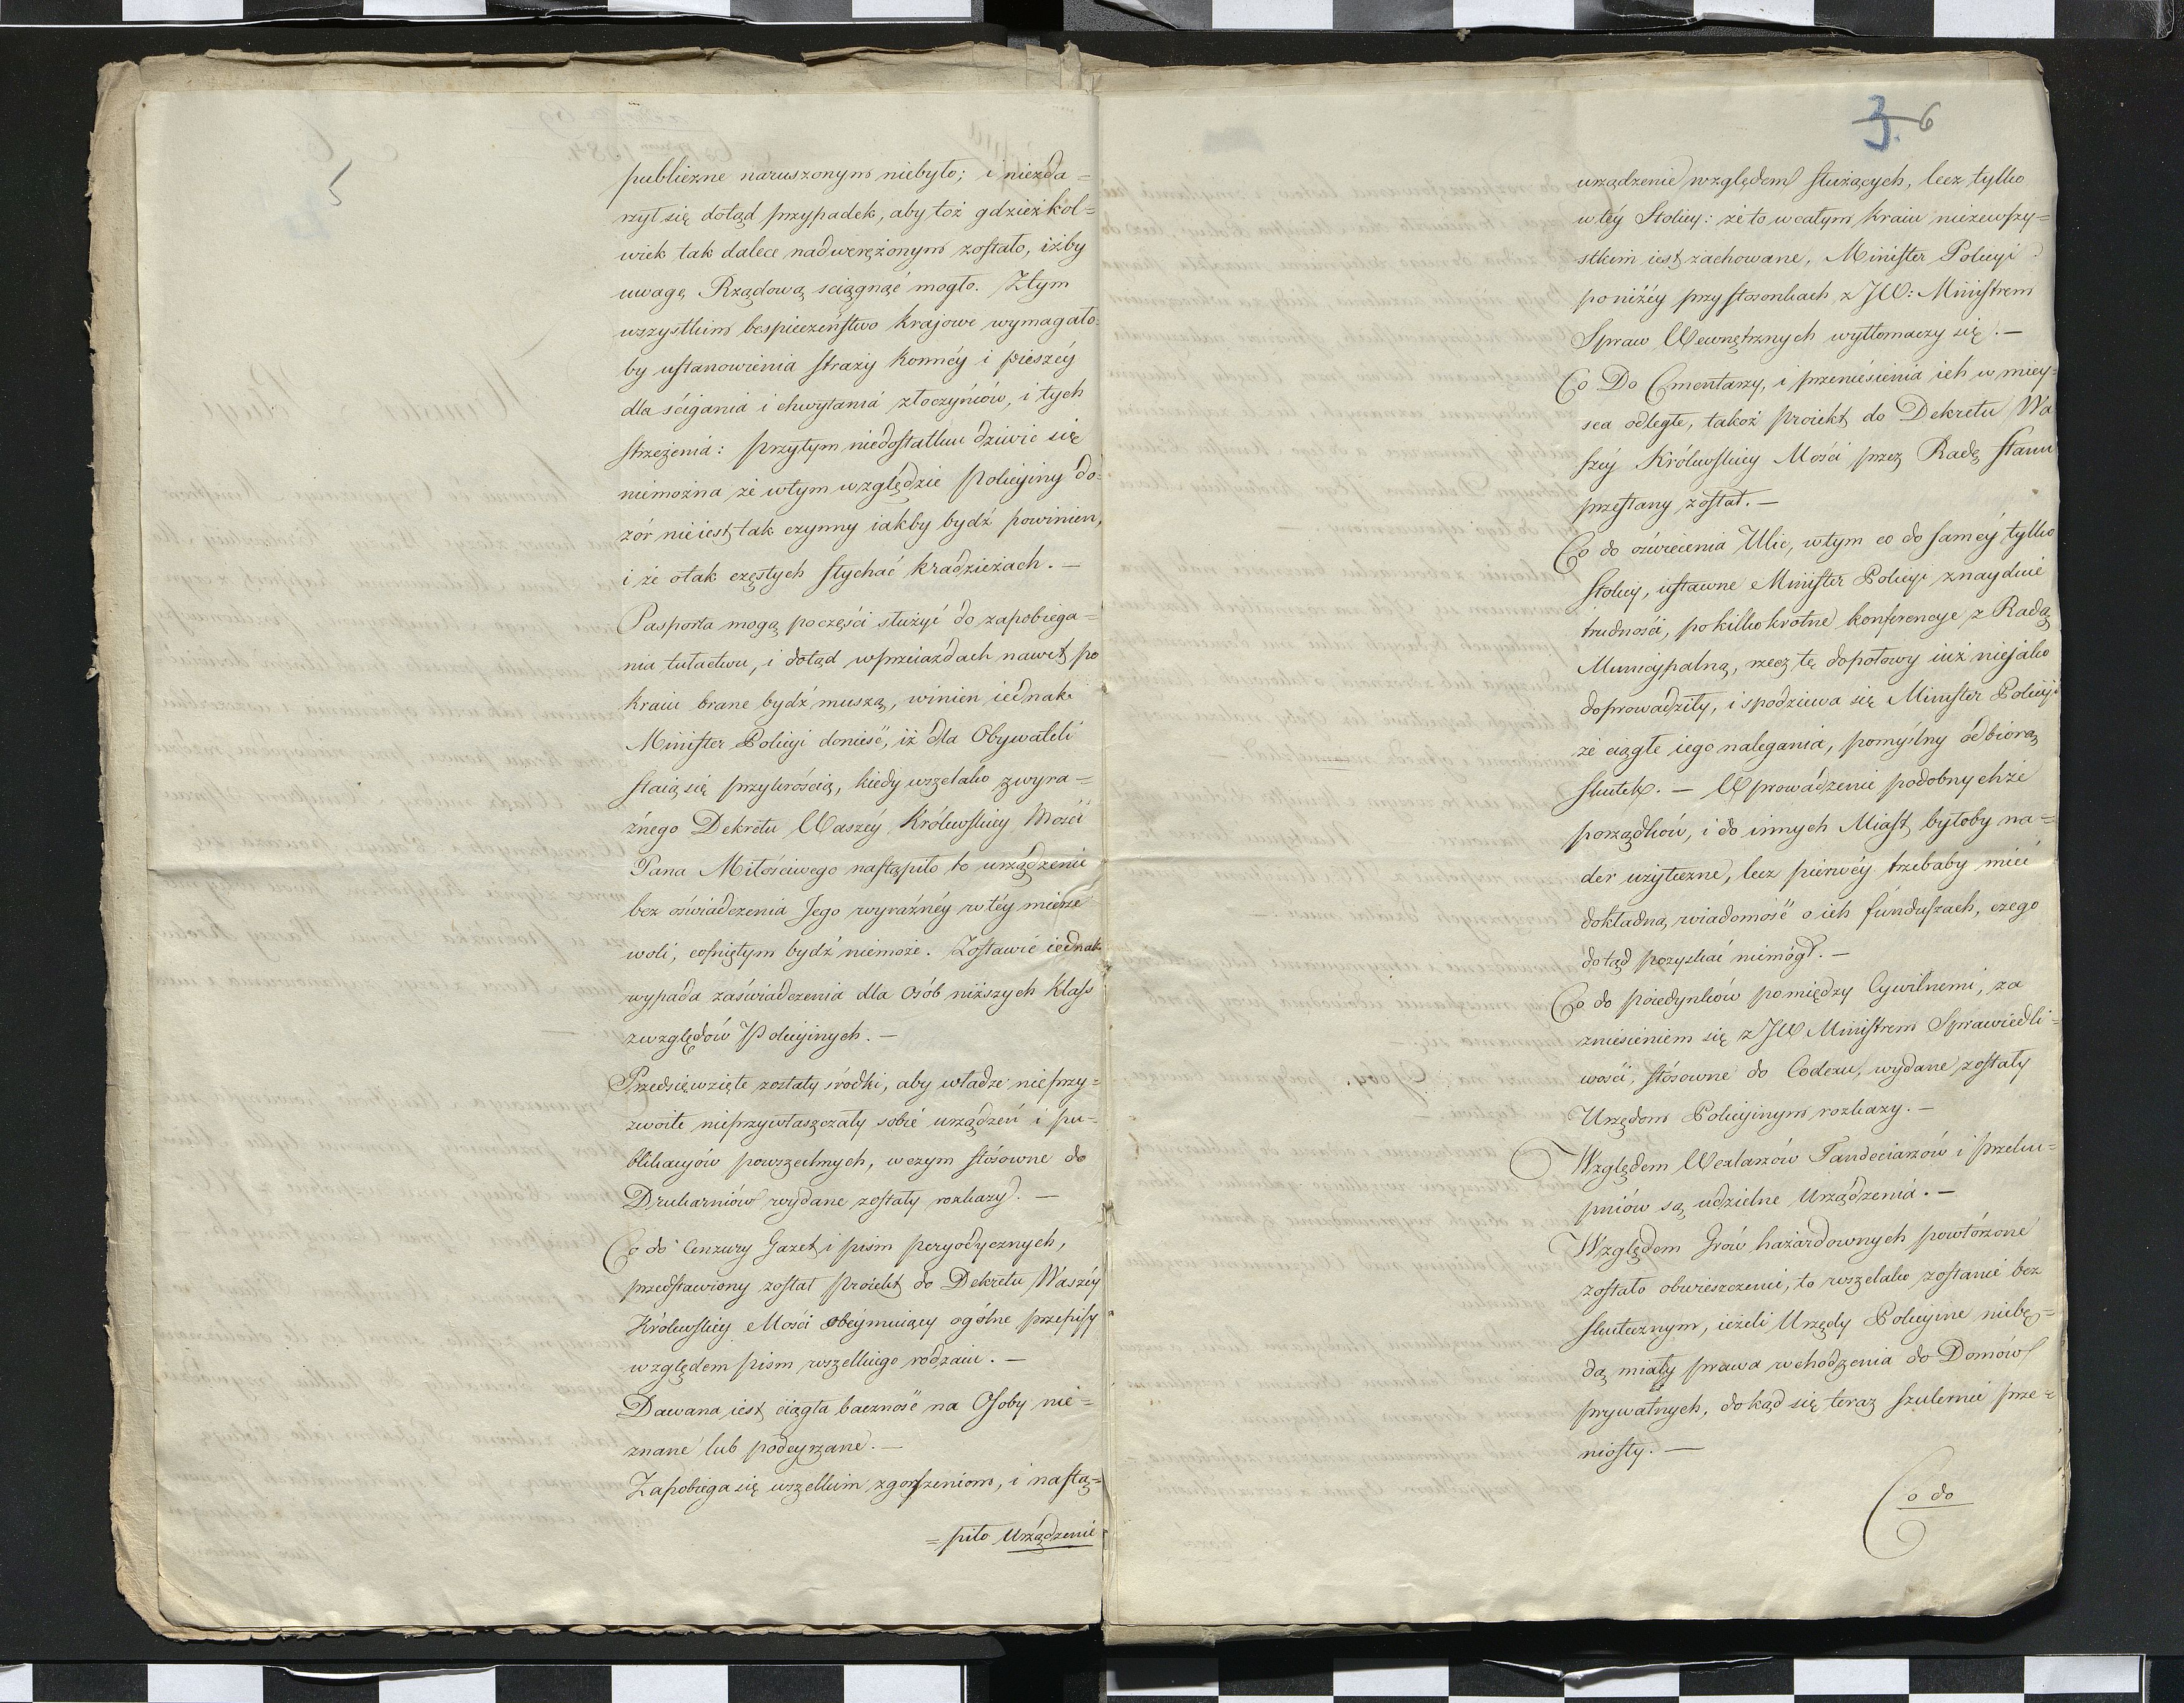 5
publiczne naruszonym niebyło; i niezda=
rzył się dotąd przypadek, aby toż gdzieżkol=
wiek tak dalece nadwerężonym zostało, iżby
uwagę Rządową sciągnąć mogło. Ztym
wszystkim bespieczeństwo krajowe wymagało=
by ustanowienia straży konnéy i pieszéy
dla ścigania i chwytania złoczyńców, i tych
strzeżenia: przytym niedostatku dziwić się
niemożna że wtym względzie Policyiny do=
zór nieiest tak czynny iakby bydź powinien,
i że otak częstych słychać kradzieżach. —
Pasporta mogą poczęści służyć do zapobiega=
nia tułactwu, i dotąd wprzeiazdach nawet po
kraiu brane bydź muszą, winien iednak
Minister Policyi donieść, iż dla Obywateli
staią się przykrością, kiedy wszelako zwyra=
źnego Dekretu Waszéy Królewskiey Mości
Pana Miłościwego nastąpiło to urządzenie
bez oświadczenia Jego wyraźnéy w téy mierze
woli, cofniętym bydź niemoże. Zostawić iednak
wypada zaświadczenia dla Osób niższych klass
zwzględów Policyinych. —
Przedsięwzięte zostały środki, aby władze nieprzy=
zwoite nieprzywłaszczały sobie urządzeń i pu=
blikacyów powszechnych, wczym stósowne do
Drukarniów wydane zostały rozkazy. —
Co do Cenzury Gazet i pism peryodycznych,
przedstawiony został proiekt do Dekretu Waszéy
Królewskiey Mości obeymuiący ogólne przepisy
względem pism wszelkiego rodzaiu. —
Dawana iest ciągła baczność na Osoby nie=
znane lub podeyrzane. —
Zapobiega się wszelkim zgorszeniom, i nastą=
=piło Urządzenie
3. 6
urządzenie względem służących, lecz tylko
w téy Stolicy: że to w całym kraiu niezewszy=
stkim iest zachowane, Minister Policyi
poniżéy przy stosonkach z JW: Ministrem
Spraw Wewnętrznych wytłomaczy się. —
Co Do Cmentarzy, i przeniesienia ich w miey=
sca odległe, takoż proiekt do Dekretu Wa
széy Królewskiey Mości przez Radę stanu
przesłany został. —
Co do oświecenia Ulic, wtym co do saméy tylko
Stolicy, ustawne Minister Policyi znayduie
trudności, pokilkokrotne konferencye z Radą
Municypalną, rzecz tę dopołowy iuż niejako
doprowadziły, i spodziewa się Minister Policyi
że ciągłe iego nalegania, pomyślny odbiorą
skutek. — Wprowadzenie podobnychże
porządków, i do innych Miast byłoby na=
der użyteczne, lecz pierwéy trzebaby mieć
dokładną wiadomość o ich funduszach, czego
dotąd pozyskać niemógł. —
Co do poiedynków pomiędzy Cywilnemi, za
zniesieniem się z JW Ministrem Sprawiedli=
wości, stósowne do Codexu, wydane zostały
Urzędom Policyinym rozkazy. —
Względem Wexlarzów Tandeciarzów i przeku=
pniów są udzielne Urządzenia. —
Względem Grów hazardownych powtórzone
zostało obwieszczenie, to wszelako zostanie bez
skutecznym, ieżeli Urzędy Policyine niebę=
dą miały prawa wchodzenia do Domów
prywatnych, dokąd się teraz szulernie prze=
niosły. —
Co do